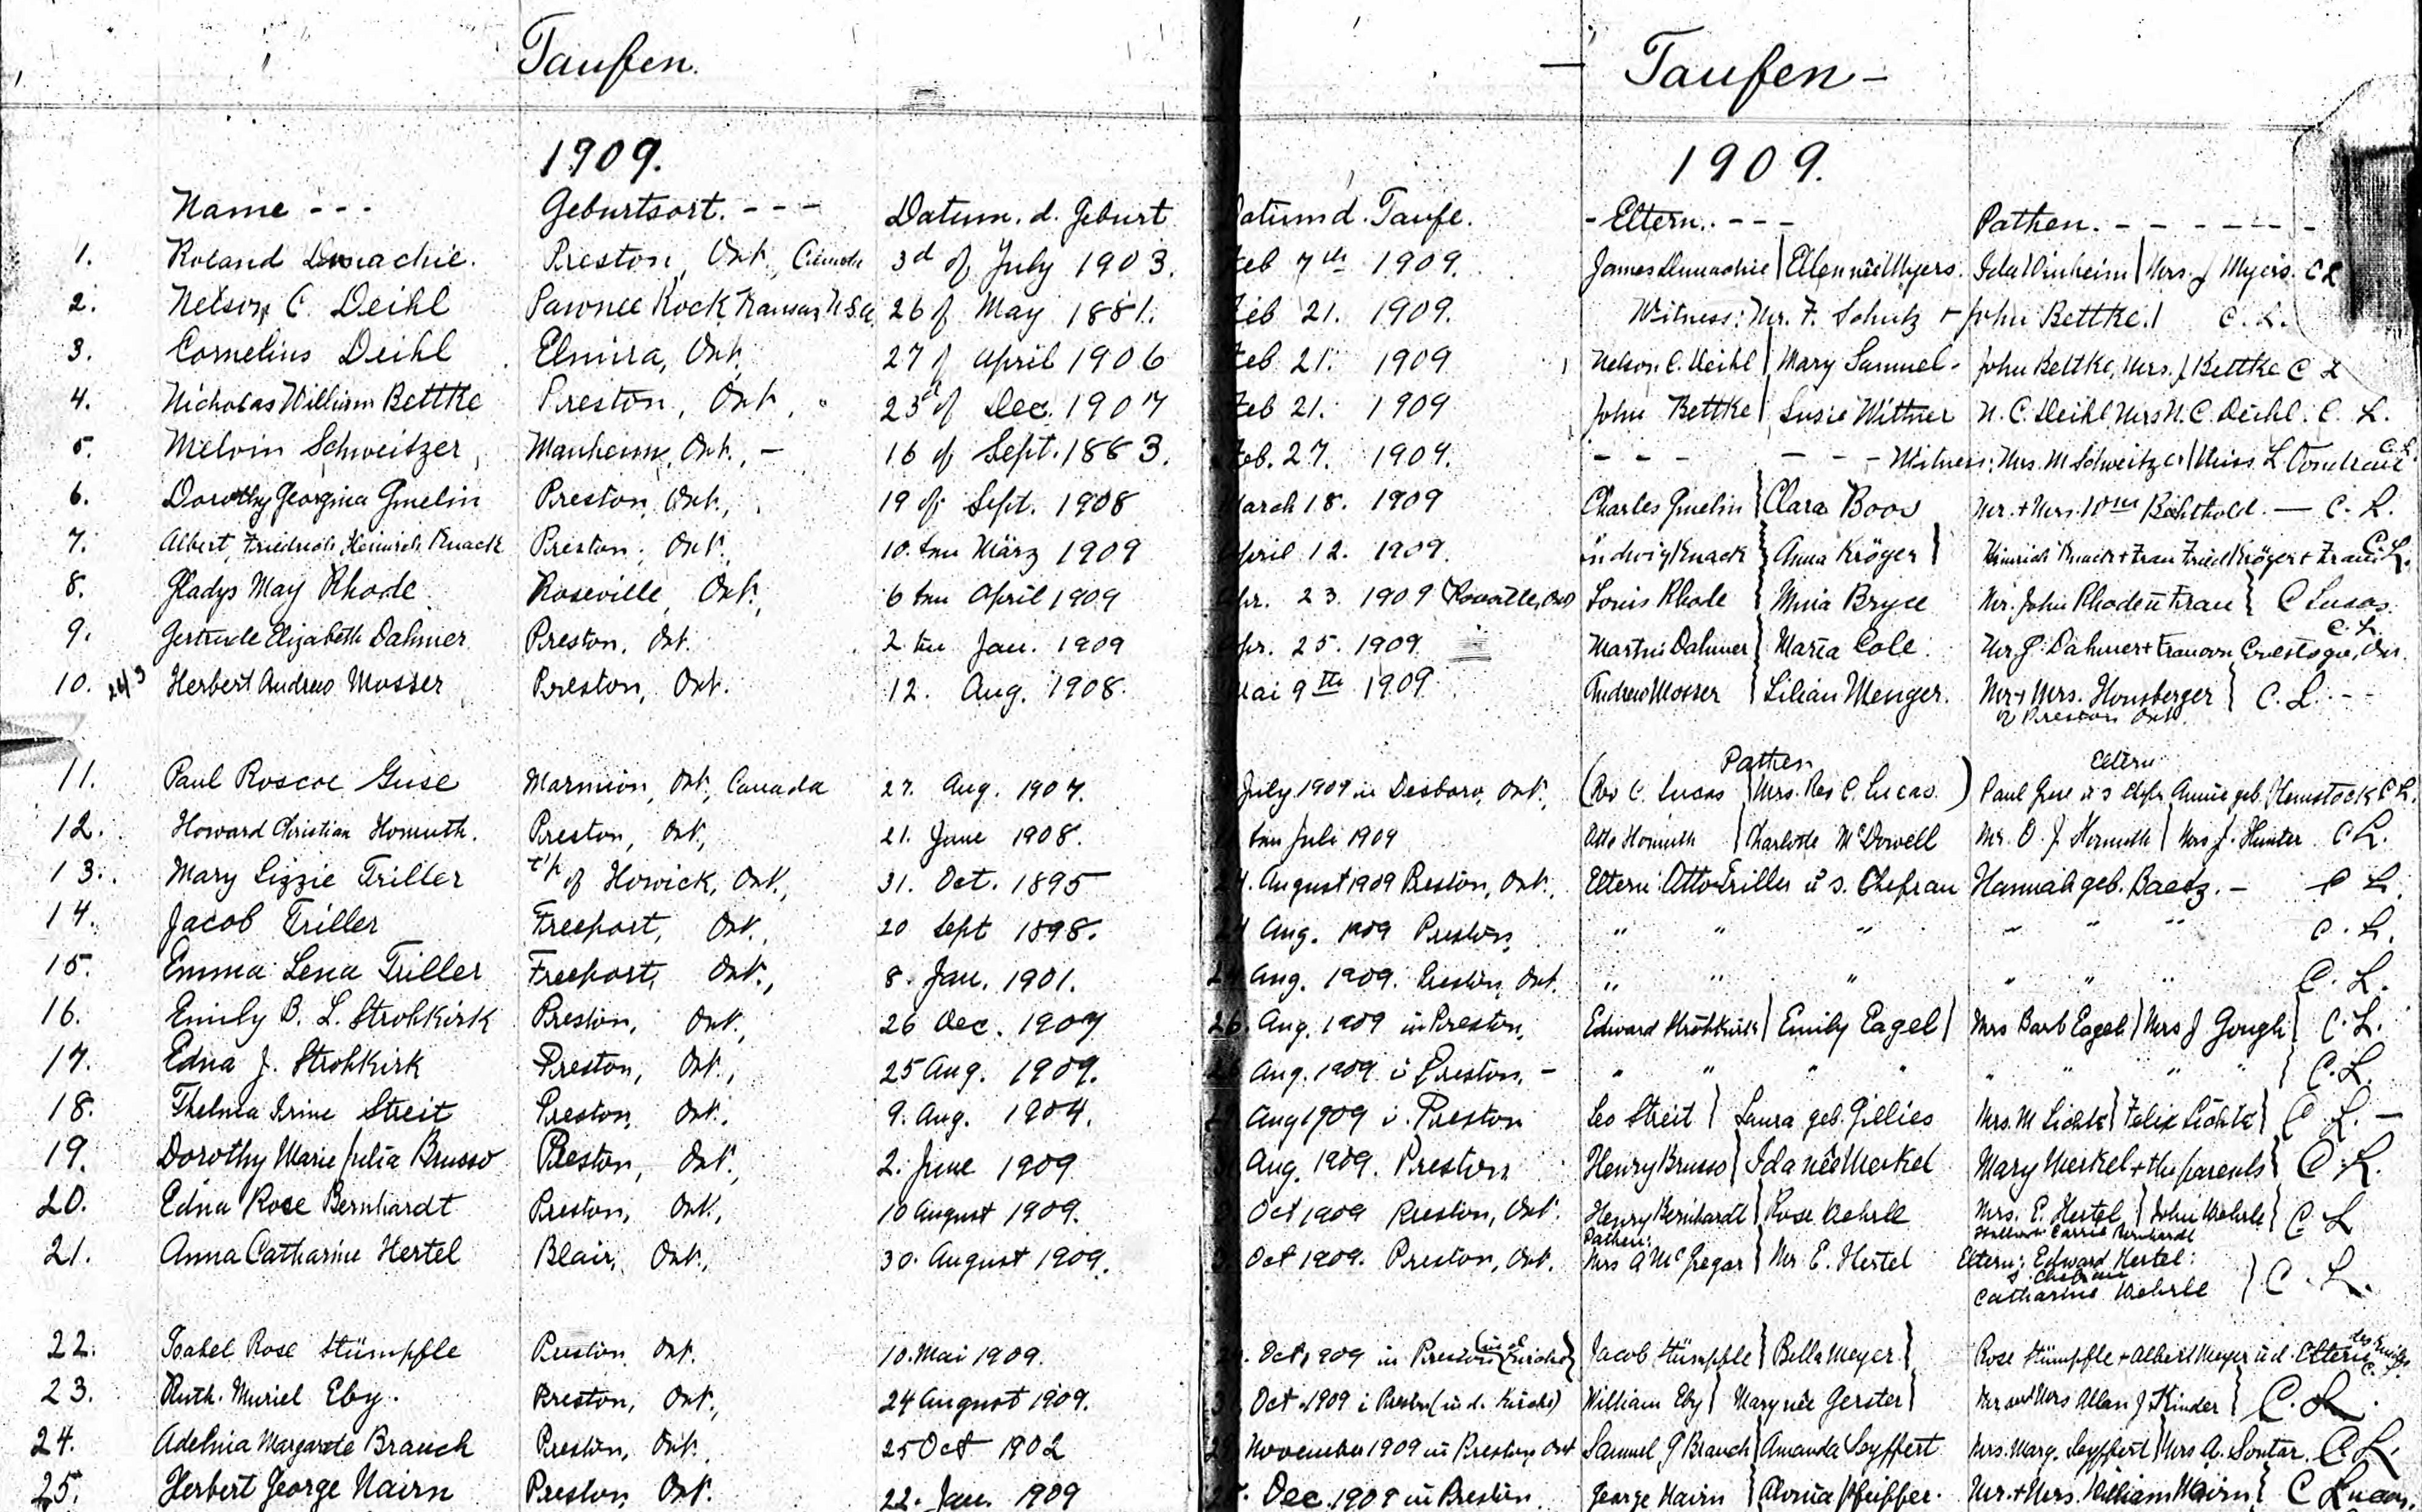 Taufen. — Taufen —
1909. 1909.
Name - - - Geburtsort. - - - Datum. d. Geburt Datum d. Taufe. - Eltern. - - - Pathen. - - - - - -
1. Roland Preston, Ont., Canada 3d of July 1903. Feb 7th 1909. James | Ellen née Myers. Ida Winheim | Mrs. J Myers. C L
2. Nelson C. Deihl Pawnee Rock, Kansas U.S.A. 26 of May 1881. Feb 21. 1909. Witness: Mr. F. Schutz + John Bettke. | C. L.
3. Cornelius Deihl Elmira, Ont. 27 of April 1906 Feb 21. 1909 Nelson C. Deihl | Mary Samuel - John Bettke, Mrs. J Bettke C L
4. Nicholas William Bettke Preston, Ont. 23d of Dec. 1907 Feb 21. 1909 John Bettke | Susie Wittner N. C. Deihl, Mrs N. C. Deihl. C. L.
5. Melvin Schweitzer, Manheim, Ont., - 16 of Sept. 1883. Feb. 27. 1909. - - - - - - Witness: Mrs. M Schweitzer | Miss. L C. L.
6. Dorothy Georgina Gmelin Preston, Ont., 19 of Sept. 1908 March 18. 1909 Charles Gmelin } Clara Boos Mr. + Mrs. Wm — C. L.
7. Albert, Friedrich, Heinrich Knack Preston, Ont. 10. ten März 1909 April 12. 1909. Ludwig Knack } Anna Kröger } Heinrich Knack + Frau Fried Kröger + Frau. C. L.
8. Gladys May Rhode Roseville, Ont., 6 ten April 1909 Apr. 23. 1909 (Roseville, Ont) Louis Rhode } Mina Bryce Mr. John Rhode u Frau } C Lucas.
9. Gertrude Elizabeth Dahmer Preston, Ont. 2 ten Jan. 1909 Apr. 25. 1909. Martin Dahmer } Maria Cole. Mr. J. Dahmer + Frau von Conestogo, Ont. C. L.
10. Herbert Andrew Mosser Preston, Ont. 12. Aug. 1908. Mai 9th 1909 Andrew Mosser } Lilian Menger. Mr + Mrs. Honsberger } C. L. - -
of Preston Ont.
Pathen Eltern
11. Paul Roscoe Guse Marmion, Ont., Canada 27. Aug. 1907. July 1909 in Desboro, Ont., (Rev C. Lucas | Mrs. Rev C. Lucas.) Paul Guse u s Ehefr Annie geb. Hemstock C L.
12. Howard Christian Homuth. Preston, Ont., 21. June 1908. ten Juli 1909 Otto Homuth | Charlotte McDowell Mr. O. J. Homuth | Mrs J. Hunter. C L.
13. Mary Lizzie Triller t'p of Howick, Ont., 31. Oct. 1895 24. August 1909 Preston, Ont., Eltern: Otto Triller u s. Ehefrau Hannah geb. Baetz. - C L.
14. Jacob Triller Freeport, Ont. 20 Sept 1898. 24 Aug. 1909 Preston, " " " " " " C. L.
15. Emma Lena Triller Freeport, Ont., 8. Jan. 1901. 24 Aug. 1909. Preston, Ont. " " " " " " C. L.
16. Emily B. L. Strohkirk Preston, Ont., 26 Dec. 1907 26. Aug. 1909 in Preston, Edward Strohkirk | Emily Eagel | Mrs Barb Eagel | Mrs J Gough } C. L.
17. Edna J. Strohkirk Preston, Ont., 25 Aug. 1909. Aug. 1909 i Preston. - " " " " " " " " } C. L.
18. Thelma Irine Streit Preston, Ont., 9. Aug. 1904. Aug 1909 i. Preston Leo Streit } Laura geb. Gillies Mrs. M Lichte } Felix Lichte } C. L. -
19. Dorothy Marie Julia Brusso Preston, Ont., 2. June 1909 Aug. 1909. Preston Henry Brusso } Ida née Merkel Mary Merkel + the parents } C. L.
20. Edna Rose Bernhardt Preston, Ont., 10 August 1909. Oct 1909 Preston, Ont. Henry Bernhardt } Rose Wehrle Mrs. E. Hertel } John Wehrle } C. L
Carrie Bernhardt
Pathen:
21. Anna Catharine Hertel Blair, Ont., 30. August 1909. Oct 1909. Preston, Ont. Mrs A McGregor } Mr E. Hertel Eltern: Edward Hertel:
s. Ehefrau
Catharine Wehrle } C. L.
22. Isabel Rose Stümpfle Preston Ont. 10. Mai 1909. Oct. 1909 in Preston (in d Kirche) Jacob Stümpfle } Bella Meyer } Rose Stümpfle + Albert Meyer u d. Eltern des Kindes C. L.
23. Ruth. Muriel Eby. Preston, Ont., 24 August 1909. Oct. 1909 i Preston (in d. Kirche) William Eby } Mary née Gerster } Mr and Mrs Allan J Kinder } C. L.
24. Adelina Margarete Brauch Preston, Ont. 25 Oct 1902 November 1909 in Preston, Ont Samuel G Brauch } Amanda Seyffert Mrs. Marg. Seyffert } Mrs A. Sontar. C. L.
25. Herbert George Nairn Preston, Ont. 22. Jan. 1909 Dec. 1909 in Preston. George Nairn } Alvina Pfeiffer. Mr. + Mrs. William Nairn } C Lucas.